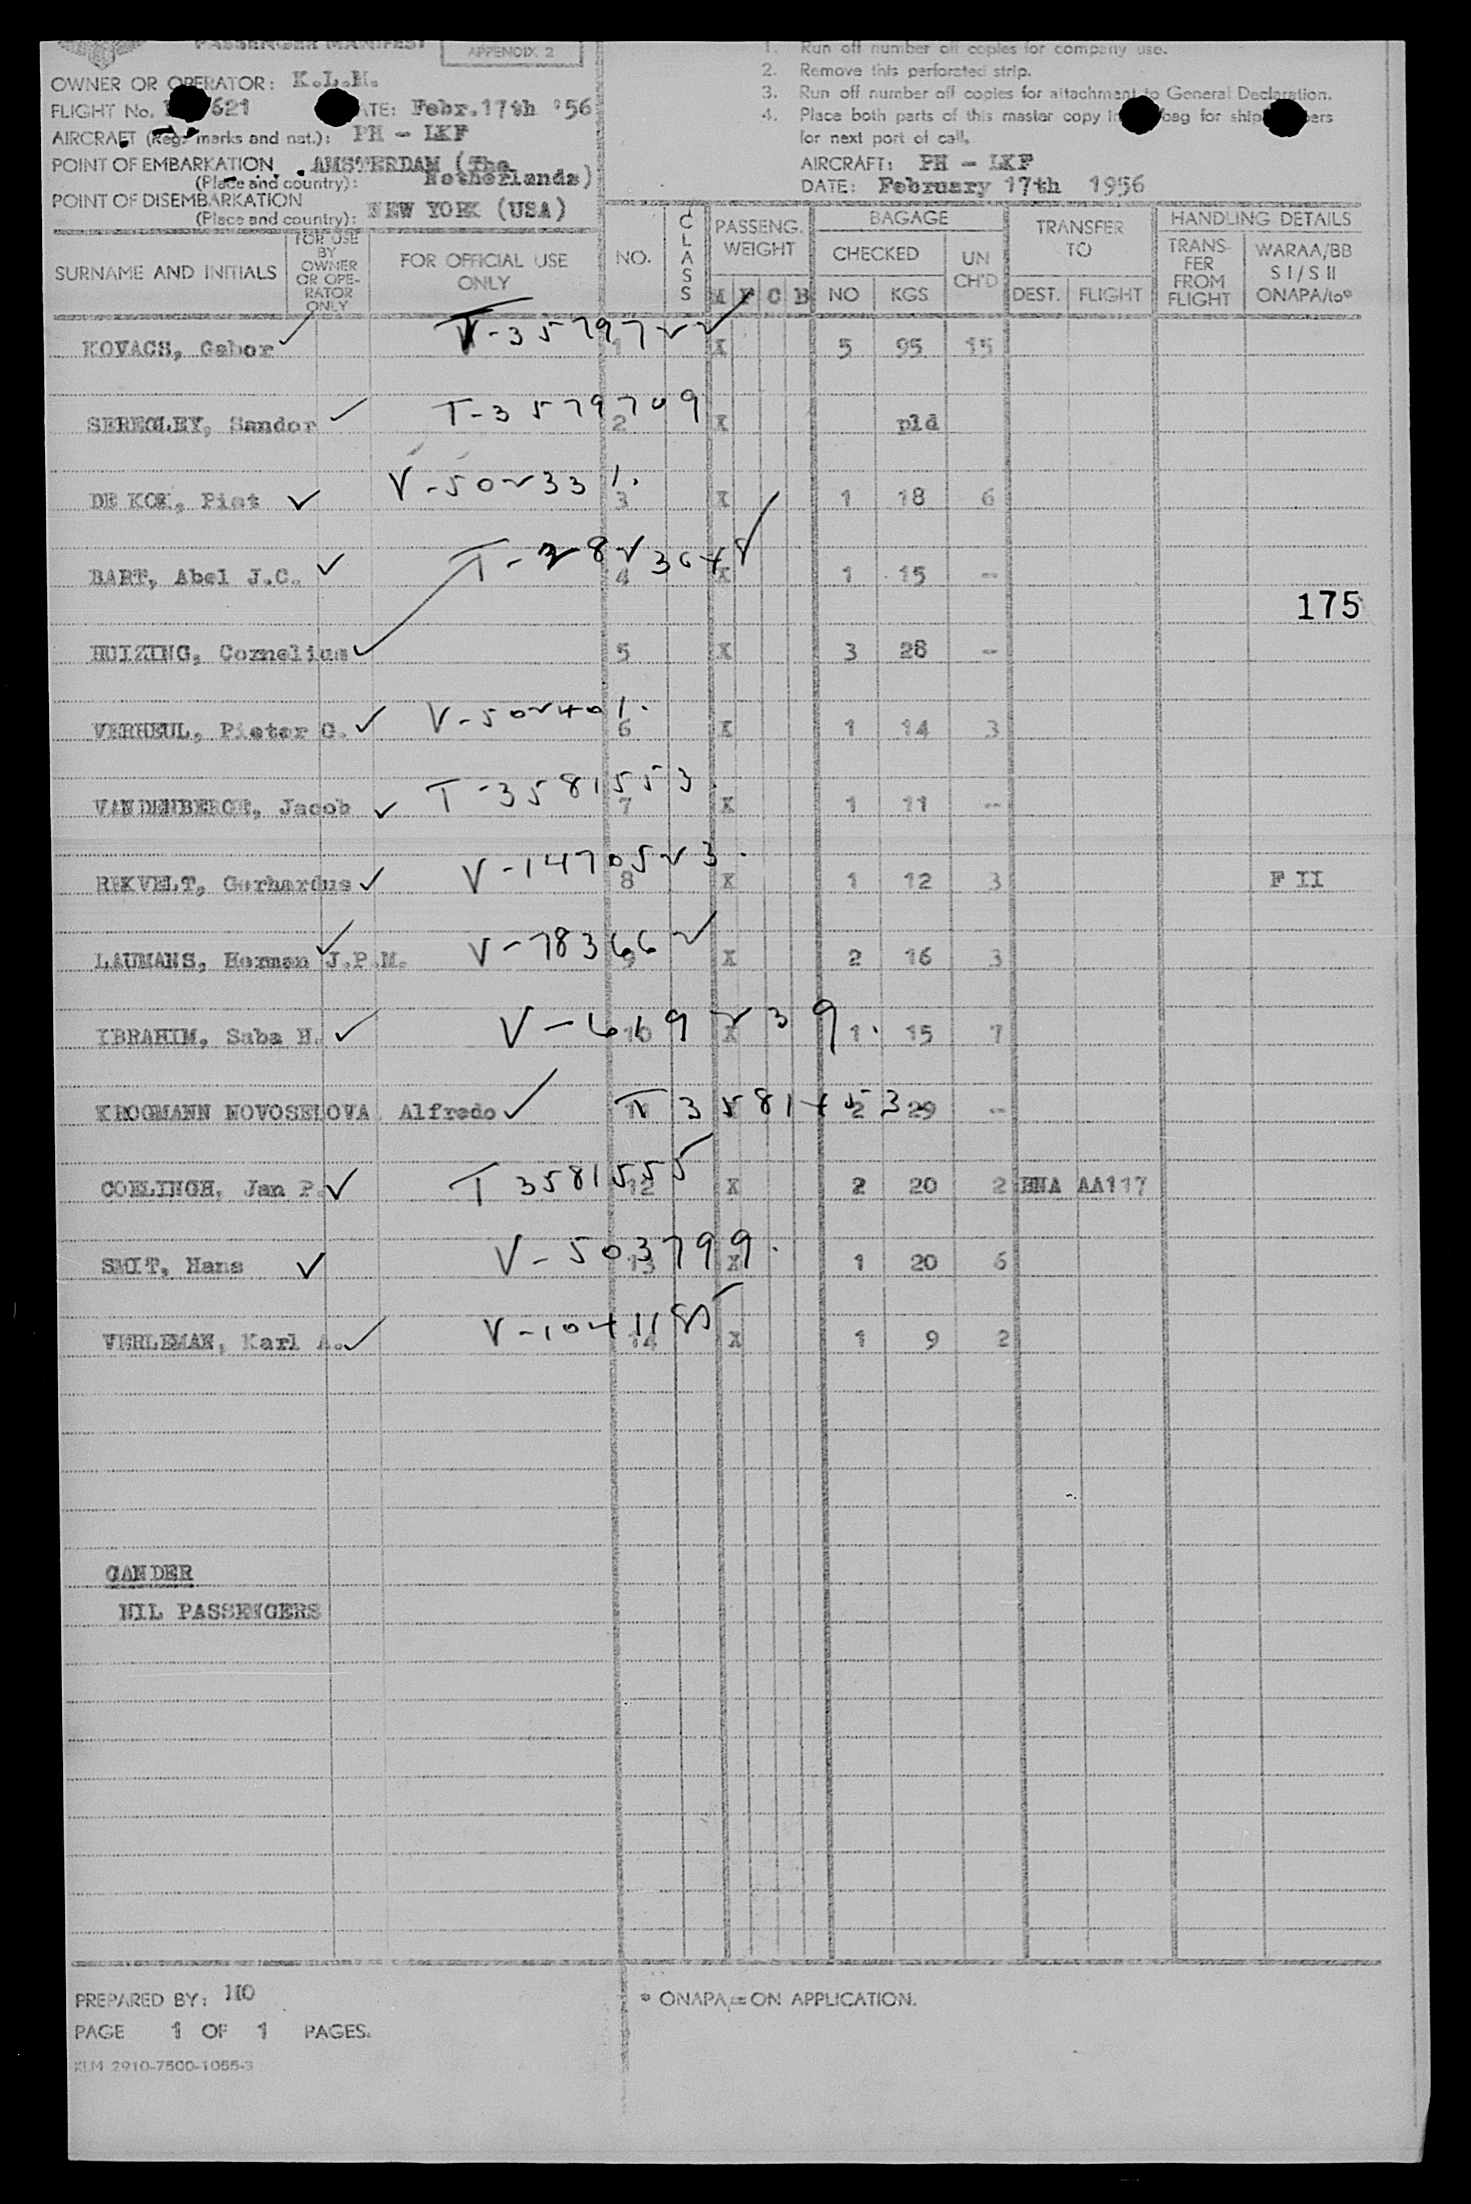 PASSENGER MANIFEST
APPENDIX 2
OWNER OR OPERATOR: K.L.M.
FLIGHT No. 621 DATE: Febr.17th '56
AIRCRAFT (Reg. marks and nat.): PH - LKF
POINT OF EMBARKATION AMSTERDAM (The
(Place and country): Netherlands)
POINT OF DISEMBARKATION
(Place and country): NEW YORK (USA)
1. Run off number off copies for company use.
2. Remove this perforated strip.
3. Run off number off copies for attachment to General Declaration.
4. Place both parts of this master copy in bag for ship
for next port of call.
AIRCRAFT: PH - LKF
DATE: February 17th 1956
SURNAME AND INITIALS
FOR USE BY OWNER OR OPE-RATOR ONLY
FOR OFFICIAL USE ONLY
NO. CLASS
PASSENG. WEIGHT
M F C B
BAGAGE
CHECKED
NO KGS
UN CH'D
TRANSFER TO
DEST. FLIGHT
HANDLING DETAILS
TRANS-FER FROM FLIGHT
WARAA/BB S I / S II ONAPA/to*
KOVACS, Gabor T-3579722 1 X 5 95 15
SEREGLEY, Sandor T-3579709 2 X pld
DE KOK, Piet V-502331. 3 X 1 18 6
BART, Abel J.C. 4 X 1 15 --
175
HUIZING, Cornelius T-3823648 5 X 3 28 --
VERHEUL, Pieter G. V-502401. 6 X 1 14 3
VANDENBERGH, Jacob T-3581553. 7 X 1 11 --
REKVELT, Gerhardus V-1470523. 8 X 1 12 3 F II
LAUMANS, Herman J.P.M. V-783662 9 X 2 16 3
IBRAHIM, Saba H. V-619239. 10 X 1 15 7
KROGMANN NOVOSELOVA Alfredo T 3581453 11 X 2 29 --
COELINGH, Jan P. T 3581555 12 X 2 20 2 BNA AA117
SMIT, Hans V-503799. 13 X 1 20 6
VERLEMAN, Karl A. V-1041185 14 X 1 9 2
GANDER
NIL PASSENGERS
PREPARED BY: HO
* ONAPA = ON APPLICATION.
PAGE 1 OF 1 PAGES.
KLM 2910-7500-1055-3